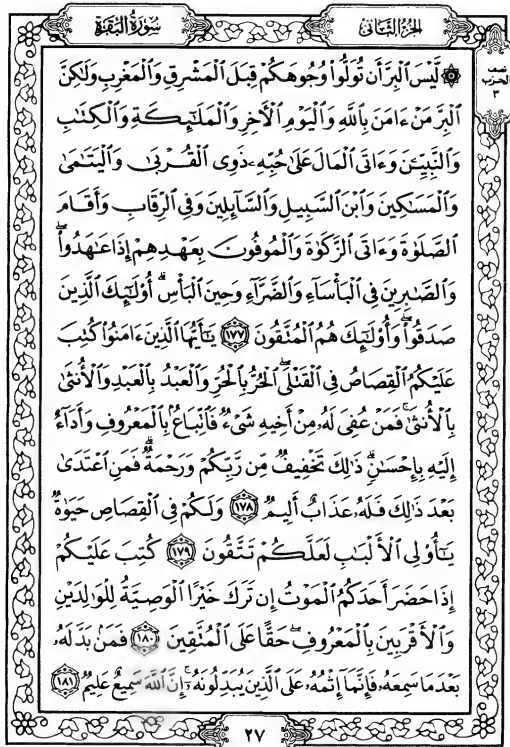 سُورَةُ الْبَقَرَةِ
الجُزْءُ الثَّانِى
نصف
الحزب
٣
۞ لَّيْسَ ٱلْبِرَّ أَن تُوَلُّوا۟ وُجُوهَكُمْ قِبَلَ ٱلْمَشْرِقِ وَٱلْمَغْرِبِ وَلَـٰكِنَّ
ٱلْبِرَّ مَنْ ءَامَنَ بِٱللَّهِ وَٱلْيَوْمِ ٱلْـَٔاخِرِ وَٱلْمَلَـٰٓئِكَةِ وَٱلْكِتَـٰبِ
وَٱلنَّبِيِّـۧنَ وَءَاتَى ٱلْمَالَ عَلَىٰ حُبِّهِۦ ذَوِى ٱلْقُرْبَىٰ وَٱلْيَتَـٰمَىٰ
وَٱلْمَسَـٰكِينَ وَٱبْنَ ٱلسَّبِيلِ وَٱلسَّآئِلِينَ وَفِى ٱلرِّقَابِ وَأَقَامَ
ٱلصَّلَوٰةَ وَءَاتَى ٱلزَّكَوٰةَ وَٱلْمُوفُونَ بِعَهْدِهِمْ إِذَا عَـٰهَدُوا۟ ۖ
وَٱلصَّـٰبِرِينَ فِى ٱلْبَأْسَآءِ وَٱلضَّرَّآءِ وَحِينَ ٱلْبَأْسِ ۗ أُو۟لَـٰٓئِكَ ٱلَّذِينَ
صَدَقُوا۟ ۖ وَأُو۟لَـٰٓئِكَ هُمُ ٱلْمُتَّقُونَ ١٧٧ يَـٰٓأَيُّهَا ٱلَّذِينَ ءَامَنُوا۟ كُتِبَ
عَلَيْكُمُ ٱلْقِصَاصُ فِى ٱلْقَتْلَى ۖ ٱلْحُرُّ بِٱلْحُرِّ وَٱلْعَبْدُ بِٱلْعَبْدِ وَٱلْأُنثَىٰ
بِٱلْأُنثَىٰ ۚ فَمَنْ عُفِىَ لَهُۥ مِنْ أَخِيهِ شَىْءٌ فَٱتِّبَاعٌۢ بِٱلْمَعْرُوفِ وَأَدَآءٌ
إِلَيْهِ بِإِحْسَـٰنٍ ۗ ذَٰلِكَ تَخْفِيفٌ مِّن رَّبِّكُمْ وَرَحْمَةٌ ۗ فَمَنِ ٱعْتَدَىٰ
بَعْدَ ذَٰلِكَ فَلَهُۥ عَذَابٌ أَلِيمٌ ١٧٨ وَلَكُمْ فِى ٱلْقِصَاصِ حَيَوٰةٌ
يَـٰٓأُو۟لِى ٱلْأَلْبَـٰبِ لَعَلَّكُمْ تَتَّقُونَ ١٧٩ كُتِبَ عَلَيْكُمْ
إِذَا حَضَرَ أَحَدَكُمُ ٱلْمَوْتُ إِن تَرَكَ خَيْرًا ٱلْوَصِيَّةُ لِلْوَٰلِدَيْنِ
وَٱلْأَقْرَبِينَ بِٱلْمَعْرُوفِ ۖ حَقًّا عَلَى ٱلْمُتَّقِينَ ١٨٠ فَمَنۢ بَدَّلَهُۥ
بَعْدَمَا سَمِعَهُۥ فَإِنَّمَآ إِثْمُهُۥ عَلَى ٱلَّذِينَ يُبَدِّلُونَهُۥٓ ۚ إِنَّ ٱللَّهَ سَمِيعٌ عَلِيمٌ ١٨١
٢٧